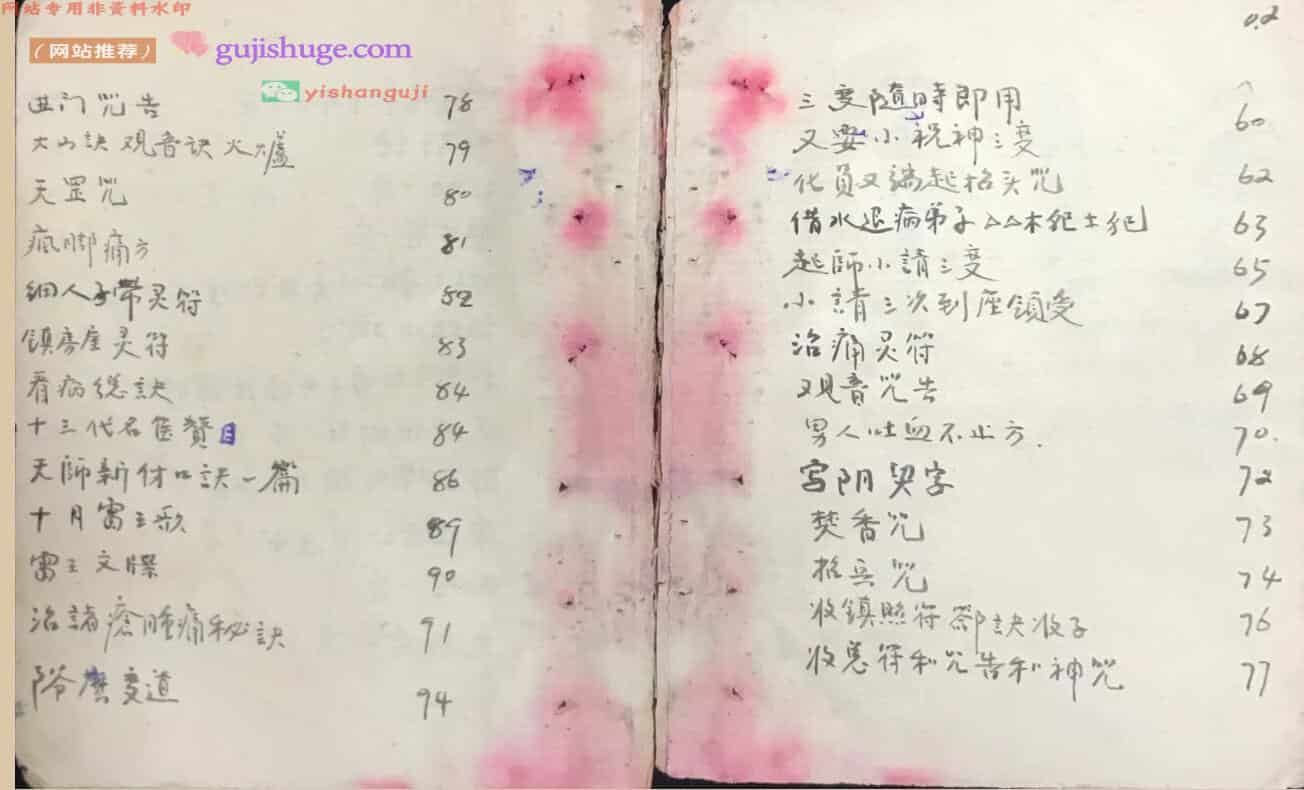 网站专用非资料水印
(网站推荐) gujishuge.com
yishanguji
0.2
三变随時即用 60
又要小祝神三变
化員又端起招头咒 62
借水退病弟子△△木犯土犯 63
起師小請三变 65
小請三次到座領受 67
治痛灵符 68
观音咒告 69
男人吐血不止方. 70.
写阴契字 72
焚香咒 73
招兵咒 74
收鎮煞符 訣收子 76
收惡符和咒告和神咒 77
咒告 78
大山訣 观音訣 火爐 79
天罡咒 80
疯脚痛方 81
细人子帶灵符 82
鎮房屋灵符 83
看病總訣 84
十三代名医赞目 84
天師新付口訣一篇 86
十月雷王歌 89
雷王文牒 90
治諸瘡腫痛秘訣 91
变道 94